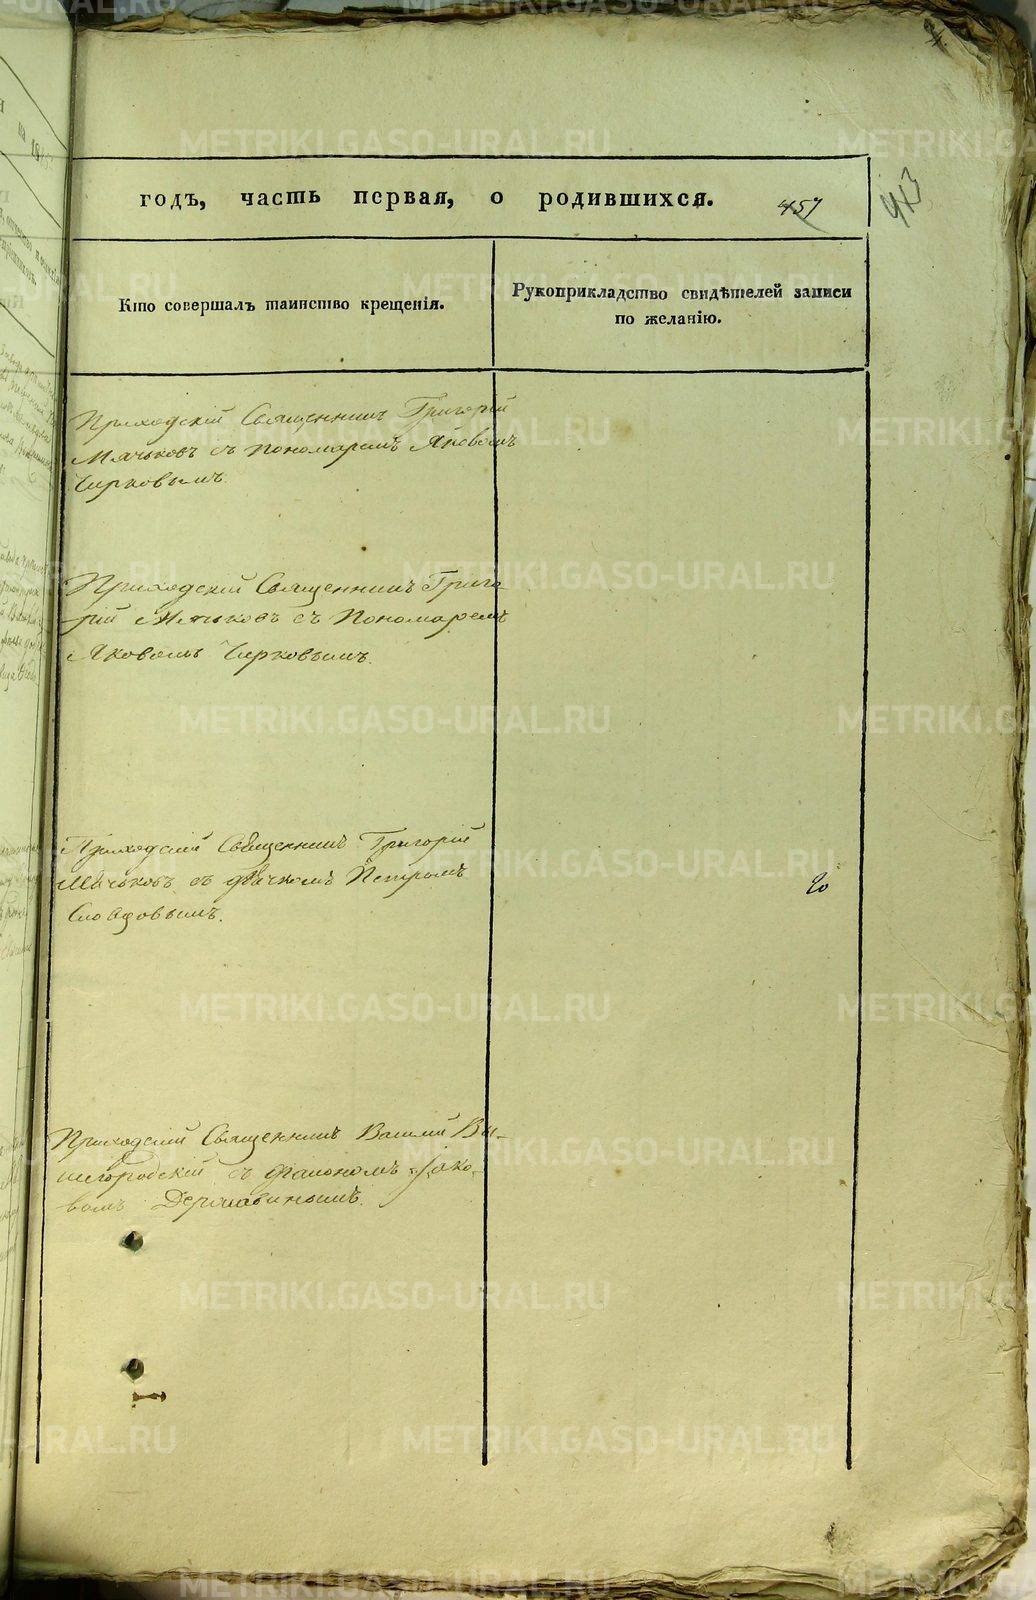 годъ, часть первая, о родившихся. 457
413
Кто совершалъ таинство крещенія.
Рукоприкладство свидѣтелей записи
по желанію.
Приходскій Священникъ Григорій
Мячьковъ съ пономаремъ Яковомъ
Чирковымъ.
Приходскій Священникъ Григо-
рій Мячьковъ съ Пономаремъ
Яковомъ Чирковымъ.
Приходскій Священникъ Григорій
Мячьковъ съ дьячкомъ Петромъ
Словцовымъ.
20
Приходскій Священникъ Василій Вы-
шегородскій съ дьякономъ Іако-
вомъ Державинымъ.
METRIKI.GASO-URAL.RU